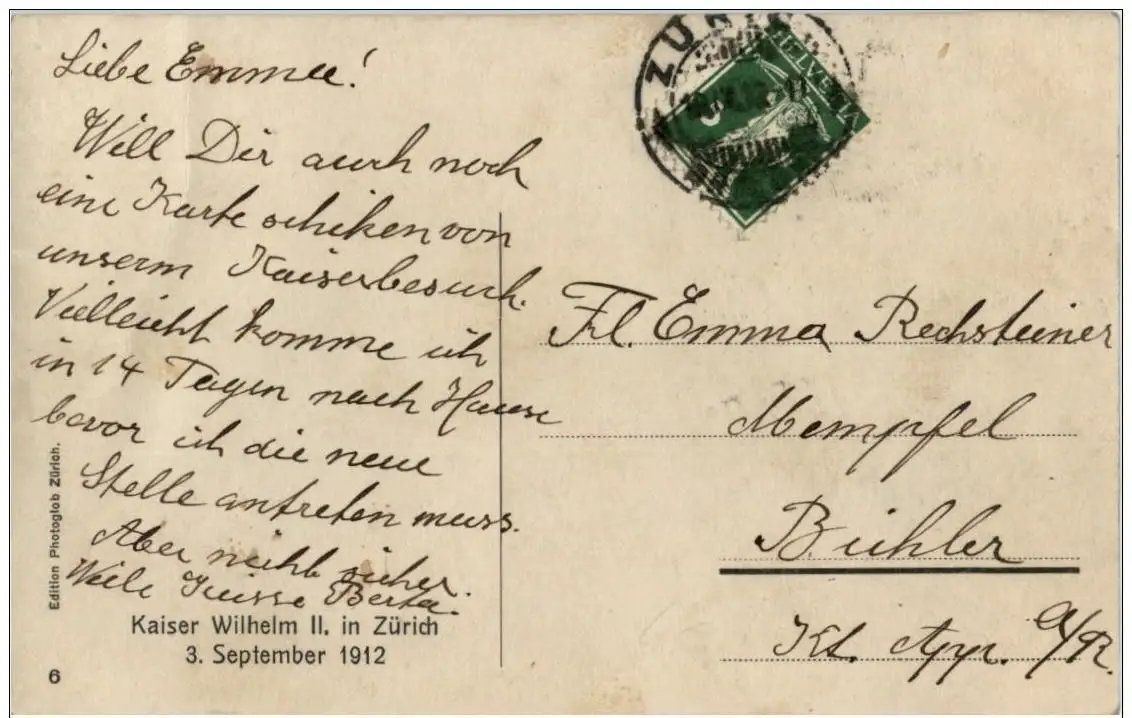 Liebe Emmee!
Will Dir auch noch
eine Karte schiken von
unserm Kaiserbesuch.
Vielleicht komme ich
in 14 Tagen nach Hause
bevor ich die neue
Stelle antreten muss.
Aber nicht sicher.
Viele Grüsse Berta.
Kaiser Wilhelm II. in Zürich
3. September 1912
6
Edition Photoglob Zürich.
ZÜRICH
HELVETIA
Frl. Emma Rechsteiner
Mempfel
Bühler
Kt. Appz. A/R.